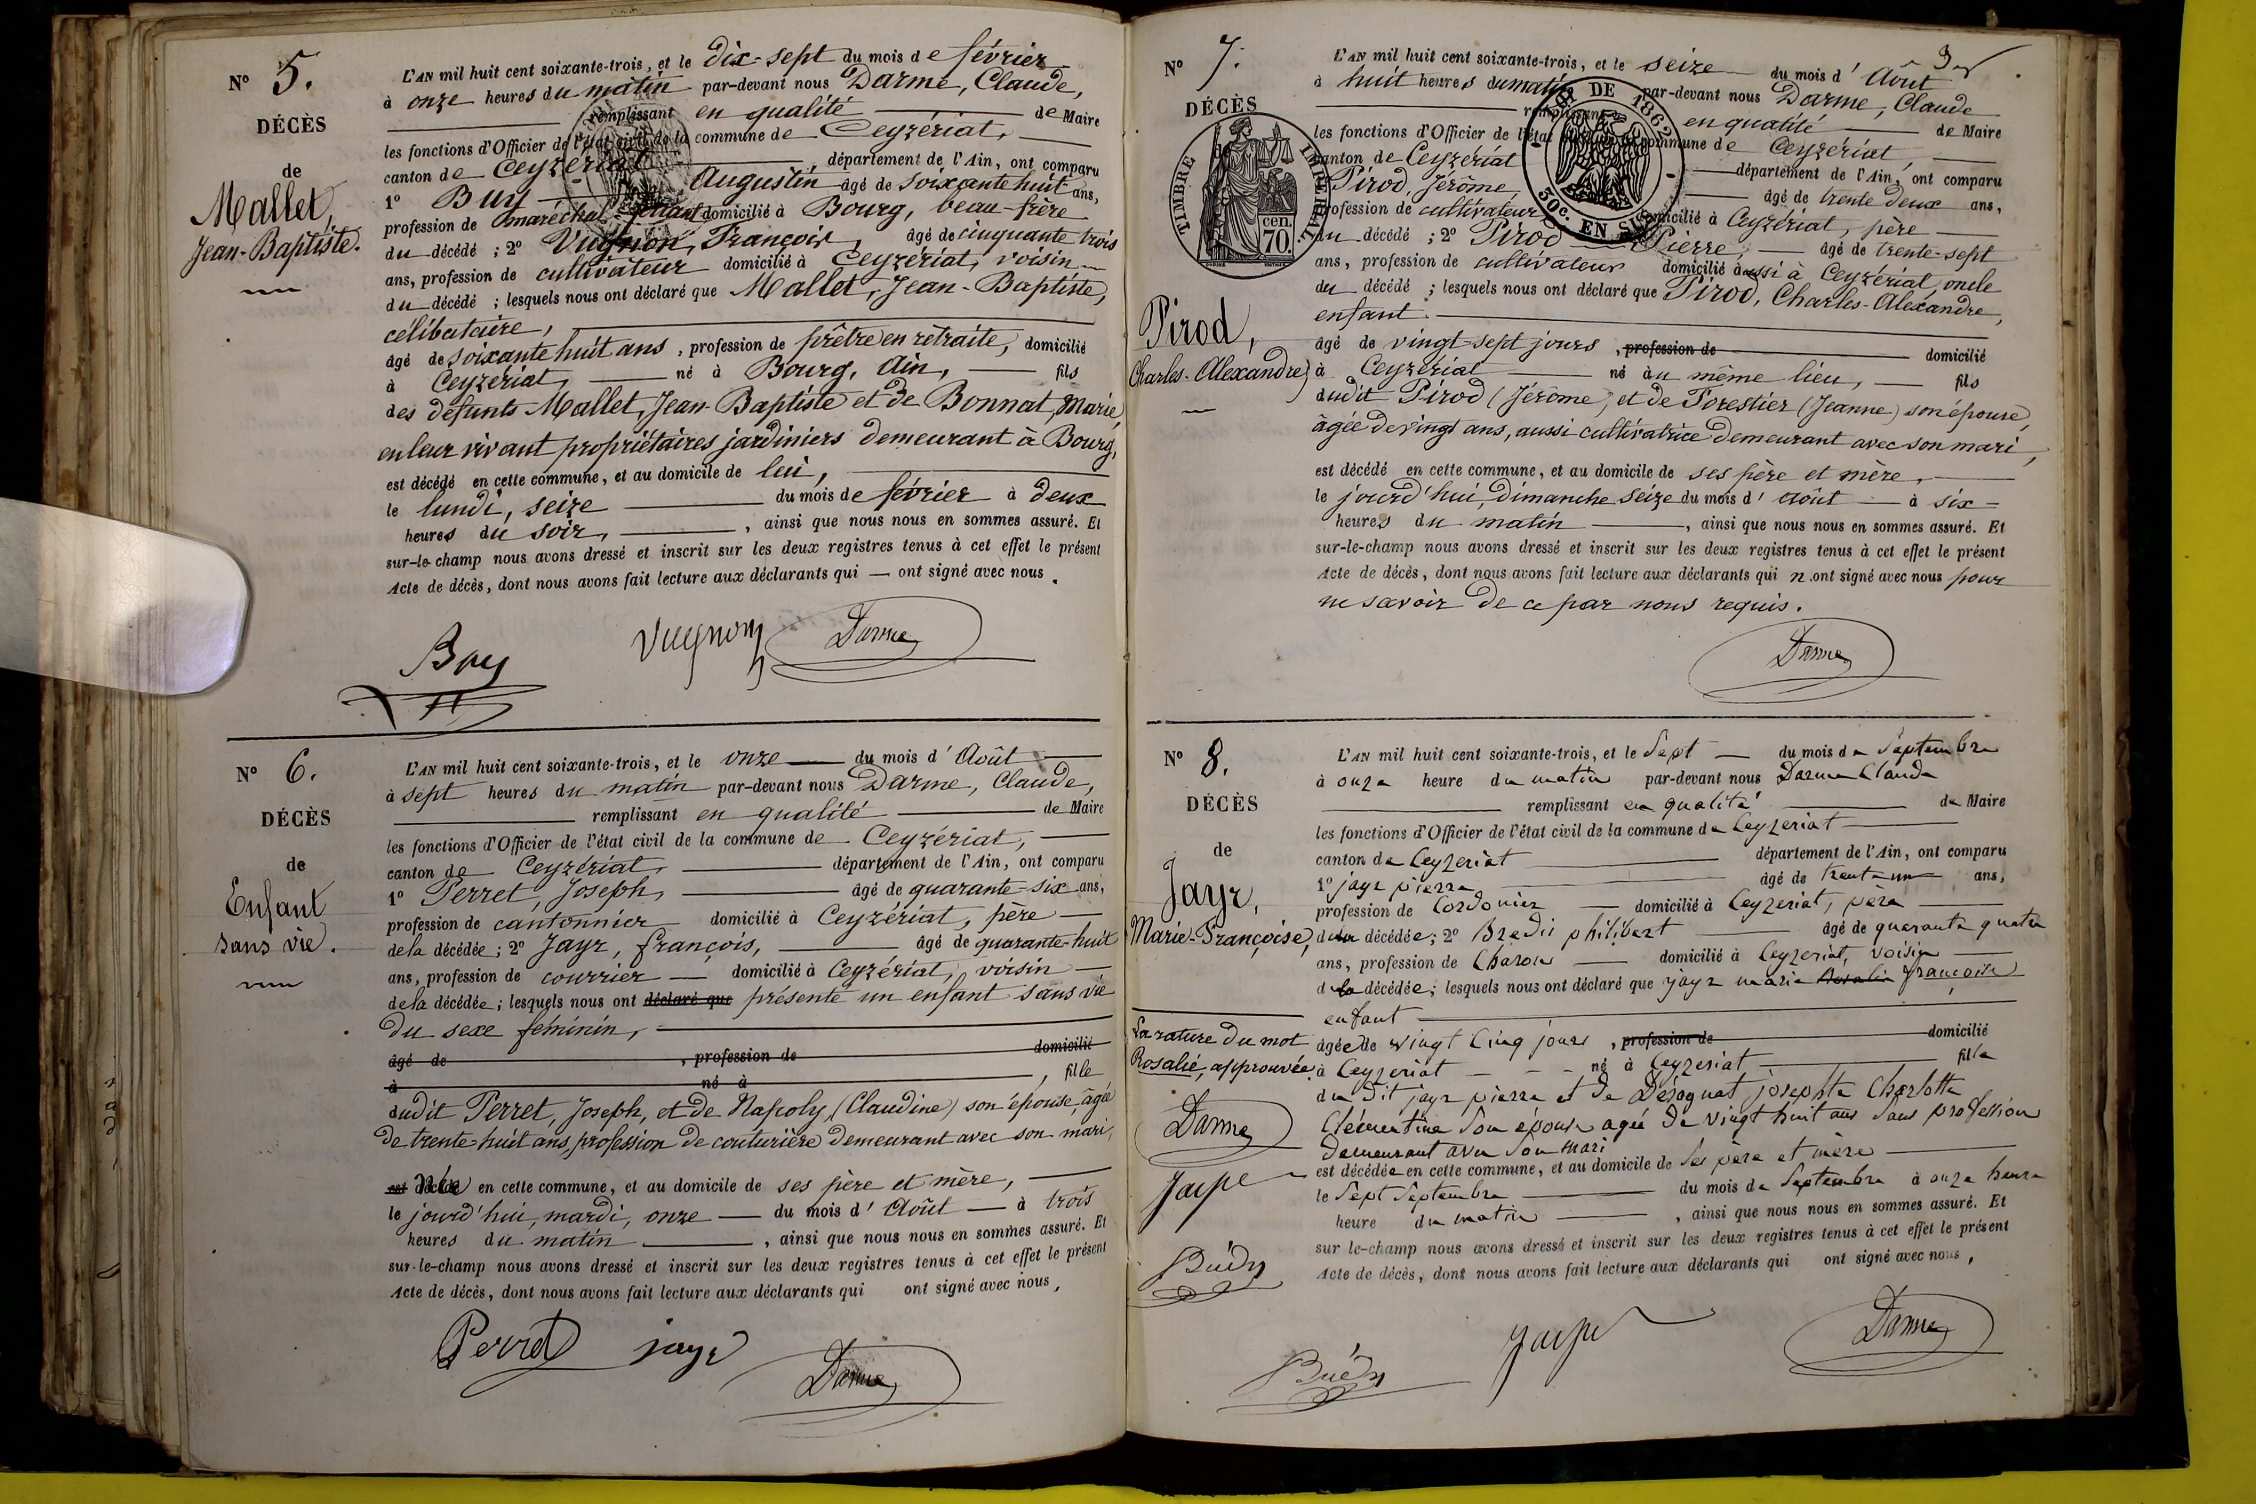 N° 5.
DÉCÈS
de
Mallet,
Jean-Baptiste.
L'AN mil huit cent soixante-trois, et le dix-sept du mois de février
à onze heures du matin par-devant nous Darme, Claude,
remplissant en qualité de Maire
les fonctions d'Officier de l'état civil de la commune de Ceyzériat,
canton de Ceyzériat, département de l'Ain, ont comparu
1° Buy Augustin âgé de soixante huit ans,
profession de maréchal domicilié à Bourg, beau-frère
du décédé ; 2° Vugnon, François, âgé de cinquante trois
ans, profession de cultivateur domicilié à Ceyzériat, voisin
du décédé ; lesquels nous ont déclaré que Mallet, Jean-Baptiste,
célibataire,
âgé de soixante huit ans, profession de prêtre en retraite, domicilié
à Ceyzériat, né à Bourg, Ain, fils
des défunts Mallet, Jean-Baptiste et de Bonnat, Marie,
en leur vivant propriétaires jardiniers demeurant à Bourg,
est décédé en cette commune, et au domicile de lui,
le lundi, seize du mois de février à deux
heures du soir, , ainsi que nous nous en sommes assuré. Et
sur-le-champ nous avons dressé et inscrit sur les deux registres tenus à cet effet le présent
Acte de décès, dont nous avons fait lecture aux déclarants qui — ont signé avec nous.
Buy Vugnon Darme
N° 6.
DÉCÈS
de
Enfant
sans vie.
L'AN mil huit cent soixante-trois, et le onze du mois d'Août
à sept heures du matin par-devant nous Darme, Claude,
remplissant en qualité de Maire
les fonctions d'Officier de l'état civil de la commune de Ceyzériat,
canton de Ceyzériat, département de l'Ain, ont comparu
1° Perret, Joseph, âgé de quarante-six ans,
profession de cantonnier domicilié à Ceyzériat, père
de la décédée ; 2° Jayr, françois, âgé de quarante-huit
ans, profession de courrier domicilié à Ceyzériat, voisin
de la décédée ; lesquels nous ont déclaré que présenté un enfant sans vie
du sexe féminin,
âgé de , profession de domicilié
à né à , fille
dudit Perret, Joseph, et de Napoly, (Claudine) son épouse, âgée
de trente-huit ans, profession de couturière demeurant avec son mari,
est née en cette commune, et au domicile de ses père et mère,
le jourd'hui, mardi, onze du mois d'Août à trois
heures du matin , ainsi que nous nous en sommes assuré. Et
sur-le-champ nous avons dressé et inscrit sur les deux registres tenus à cet effet le présent
Acte de décès, dont nous avons fait lecture aux déclarants qui ont signé avec nous,
Perret jayr Darme
N° 7.
DÉCÈS
TIMBRE IMPÉRIAL
cen.
70.
LOI DE 1862
30c. EN SUS
Pirod,
Charles-Alexandre
L'AN mil huit cent soixante-trois, et le seize du mois d'Août
à huit heures du matin par-devant nous Darme, Claude
remplissant en qualité de Maire
les fonctions d'Officier de l'état commune de Ceyzériat
canton de Ceyzériat département de l'Ain, ont comparu
Pirod, Jérôme âgé de trente deux ans,
profession de cultivateur domicilié à Ceyzériat, père
du décédé ; 2° Pirod Pierre, âgé de trente-sept
ans, profession de cultivateur domicilié aussi à Ceyzériat, oncle
du décédé ; lesquels nous ont déclaré que Pirod, Charles-Alexandre,
enfant.
âgé de vingt-sept jours, profession de domicilié
à Ceyzériat né au même lieu, fils
dudit Pirod (Jérôme) et de Forestier (Jeanne) son épouse,
âgée de vingt ans, aussi cultivatrice demeurant avec son mari,
est décédé en cette commune, et au domicile de ses père et mère,
le jourd'hui, dimanche seize du mois d'Août à six
heures du matin , ainsi que nous nous en sommes assuré. Et
sur-le-champ nous avons dressé et inscrit sur les deux registres tenus à cet effet le présent
Acte de décès, dont nous avons fait lecture aux déclarants qui n'ont signé avec nous pour
ne savoir de ce par nous requis.
Darme
N° 8.
DÉCÈS
de
Jayr,
Marie-Françoise,
La rature du mot
Rosalie, approuvée.
Darme
Jayr
Brédy
L'AN mil huit cent soixante-trois, et le Sept du mois de Septembre
à onze heure du matin par-devant nous Darme Claude
remplissant en qualité de Maire
les fonctions d'Officier de l'état civil de la commune de Ceyzeriat
canton de Ceyzeriat département de l'Ain, ont comparu
1° jayr pierre âgé de trente un ans,
profession de Cordonier domicilié à Ceyzeriat, père
de la décédée ; 2° philibert âgé de quarante quatre
ans, profession de Charon domicilié à Ceyzeriat, voisin
de la décédée ; lesquels nous ont déclaré que jayr marie Rosalie françoise
enfant
âgée de vingt Cinq jours, profession de domicilié
à Ceyzeriat né à Ceyzeriat fille
du Dit jayr pierre et de josephte Charlotte
Clémentine Son épouse agée de vingt huit ans Sans profession
Demeurant avec Son mari
est décédée en cette commune, et au domicile de Ses père et mère
le Sept Septembre du mois de Septembre à onze heure
heure du matin , ainsi que nous nous en sommes assuré. Et
sur le-champ nous avons dressé et inscrit sur les deux registres tenus à cet effet le présent
Acte de décès, dont nous avons fait lecture aux déclarants qui ont signé avec nous,
Brédy Jayr Darme